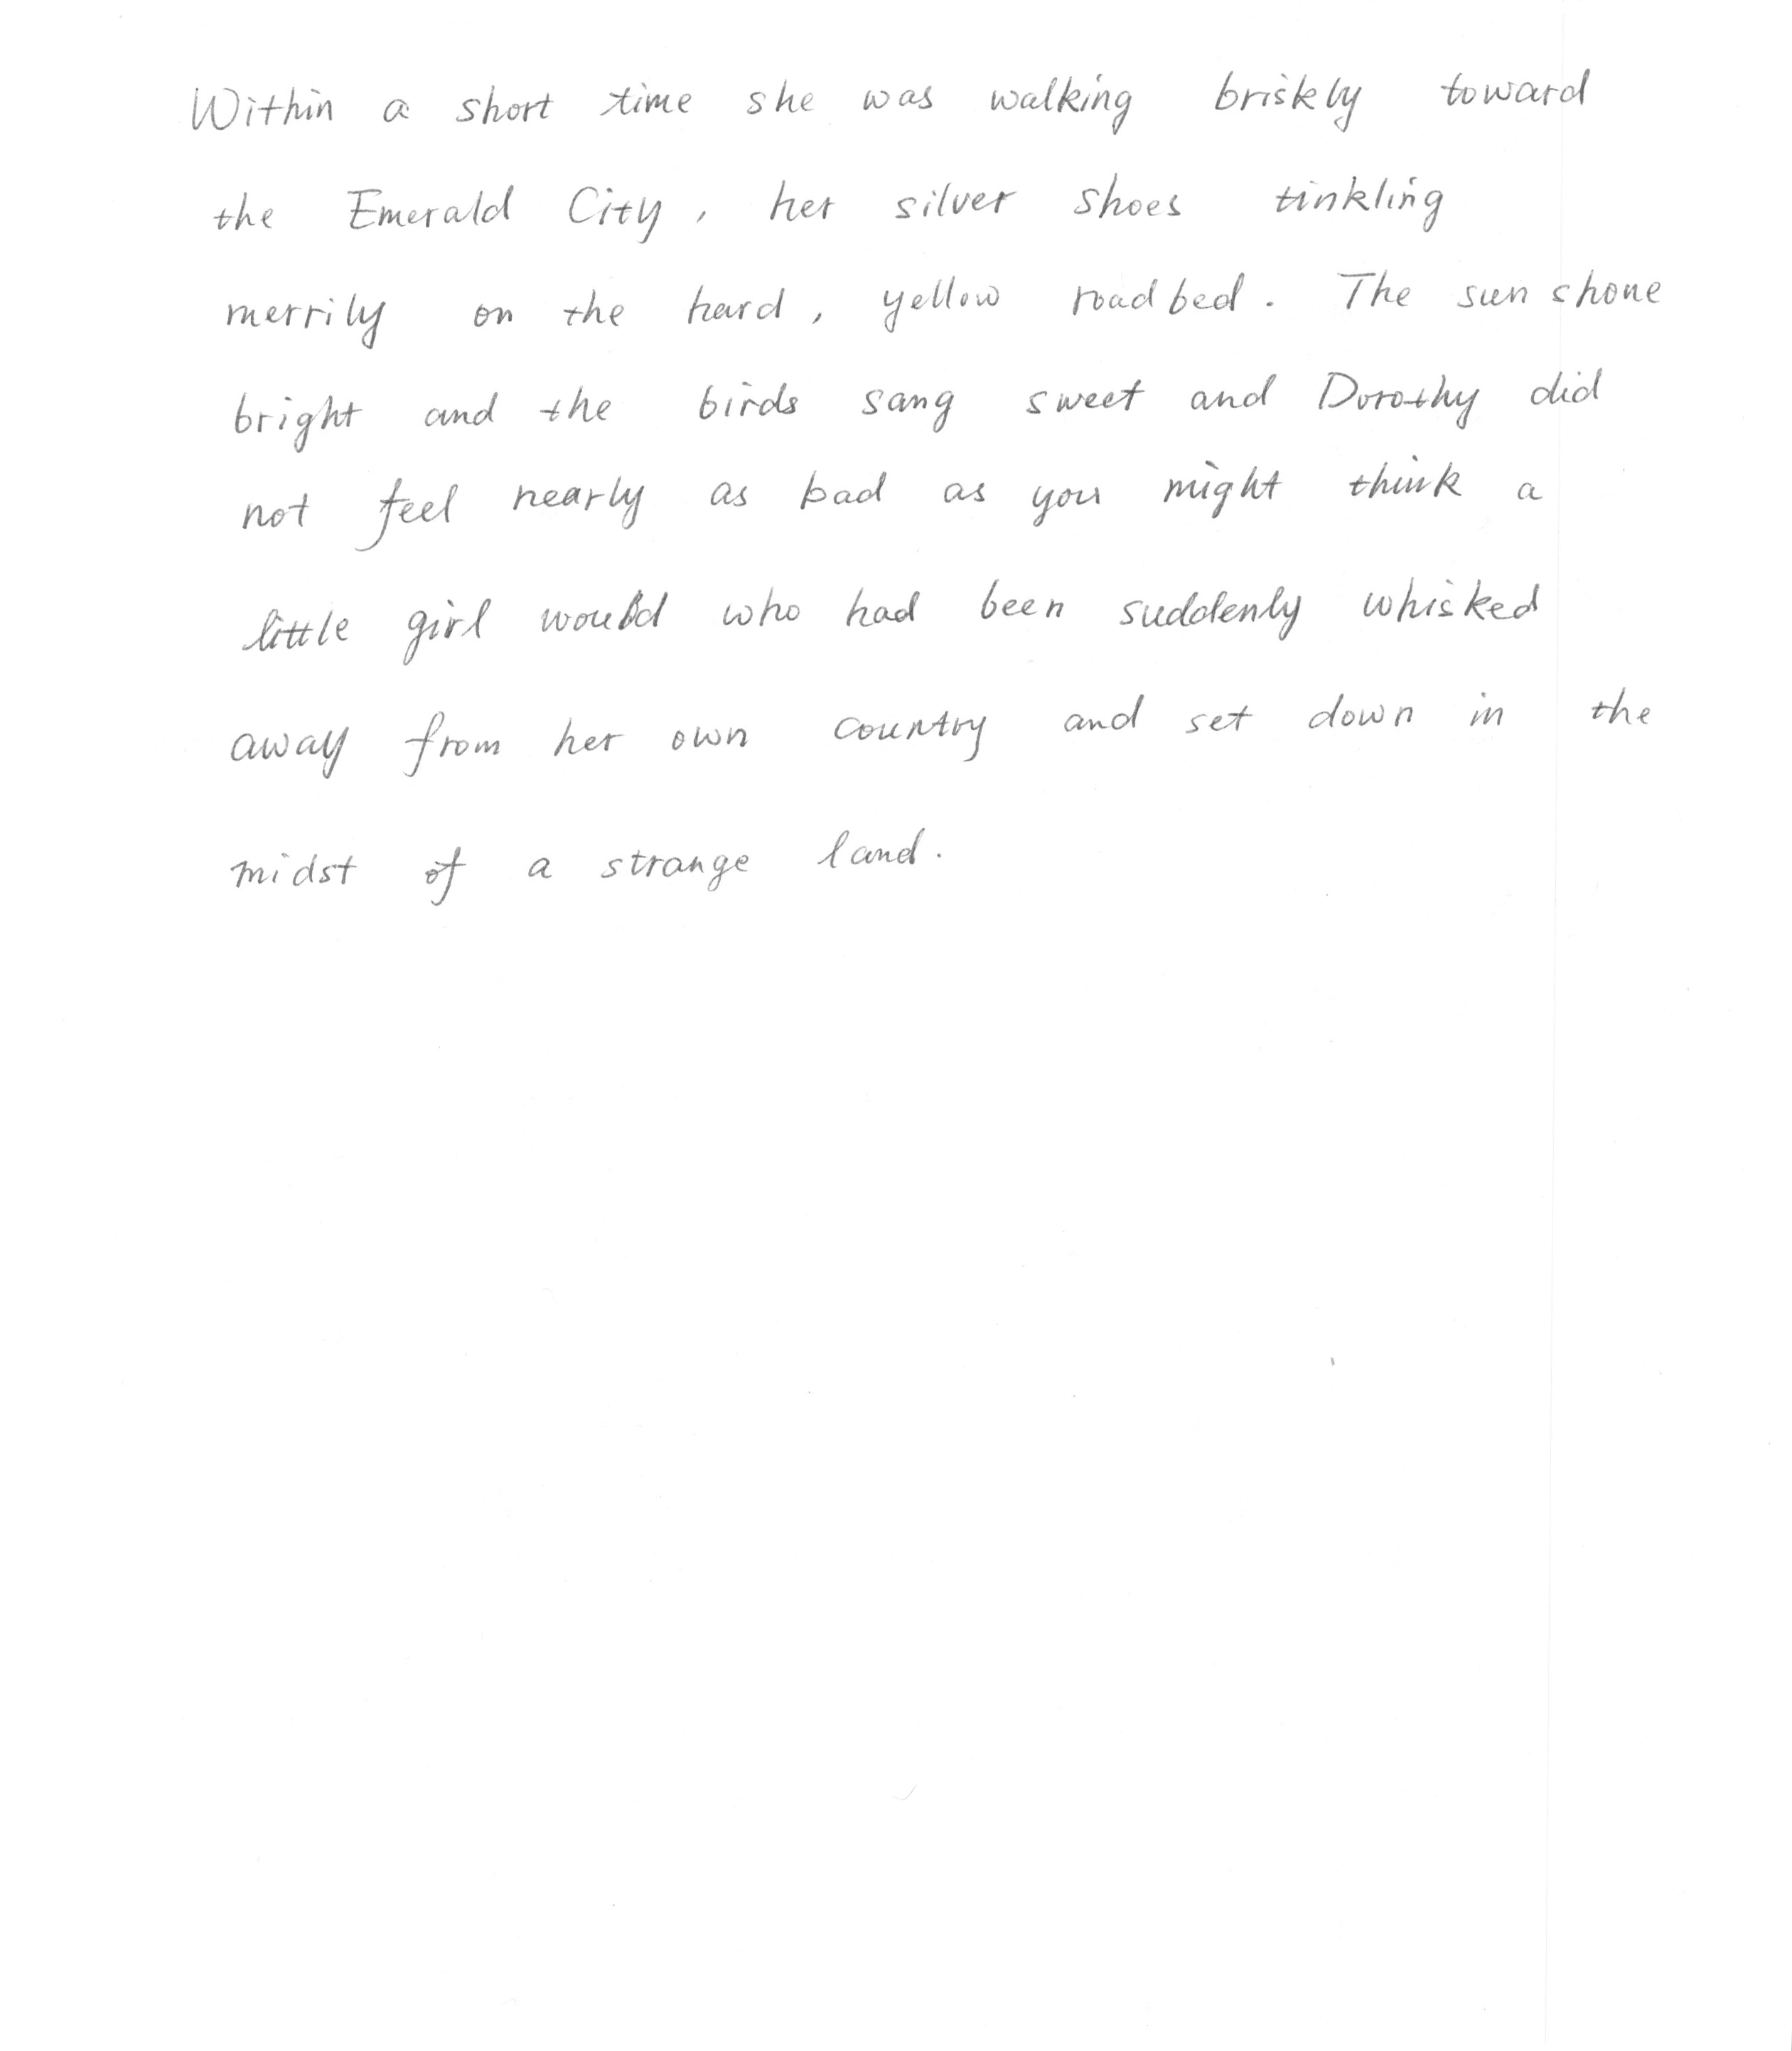 Within a short time she was walking briskly toward
the Emerald City, her silver shoes tinkling
merrily on the hard, yellow roadbed. The sun shone
bright and the birds sang sweet and Dorothy did
not feel nearly as bad as you might think a
little girl would who had been suddenly whisked
away from her own country and set down in the
midst of a strange land.